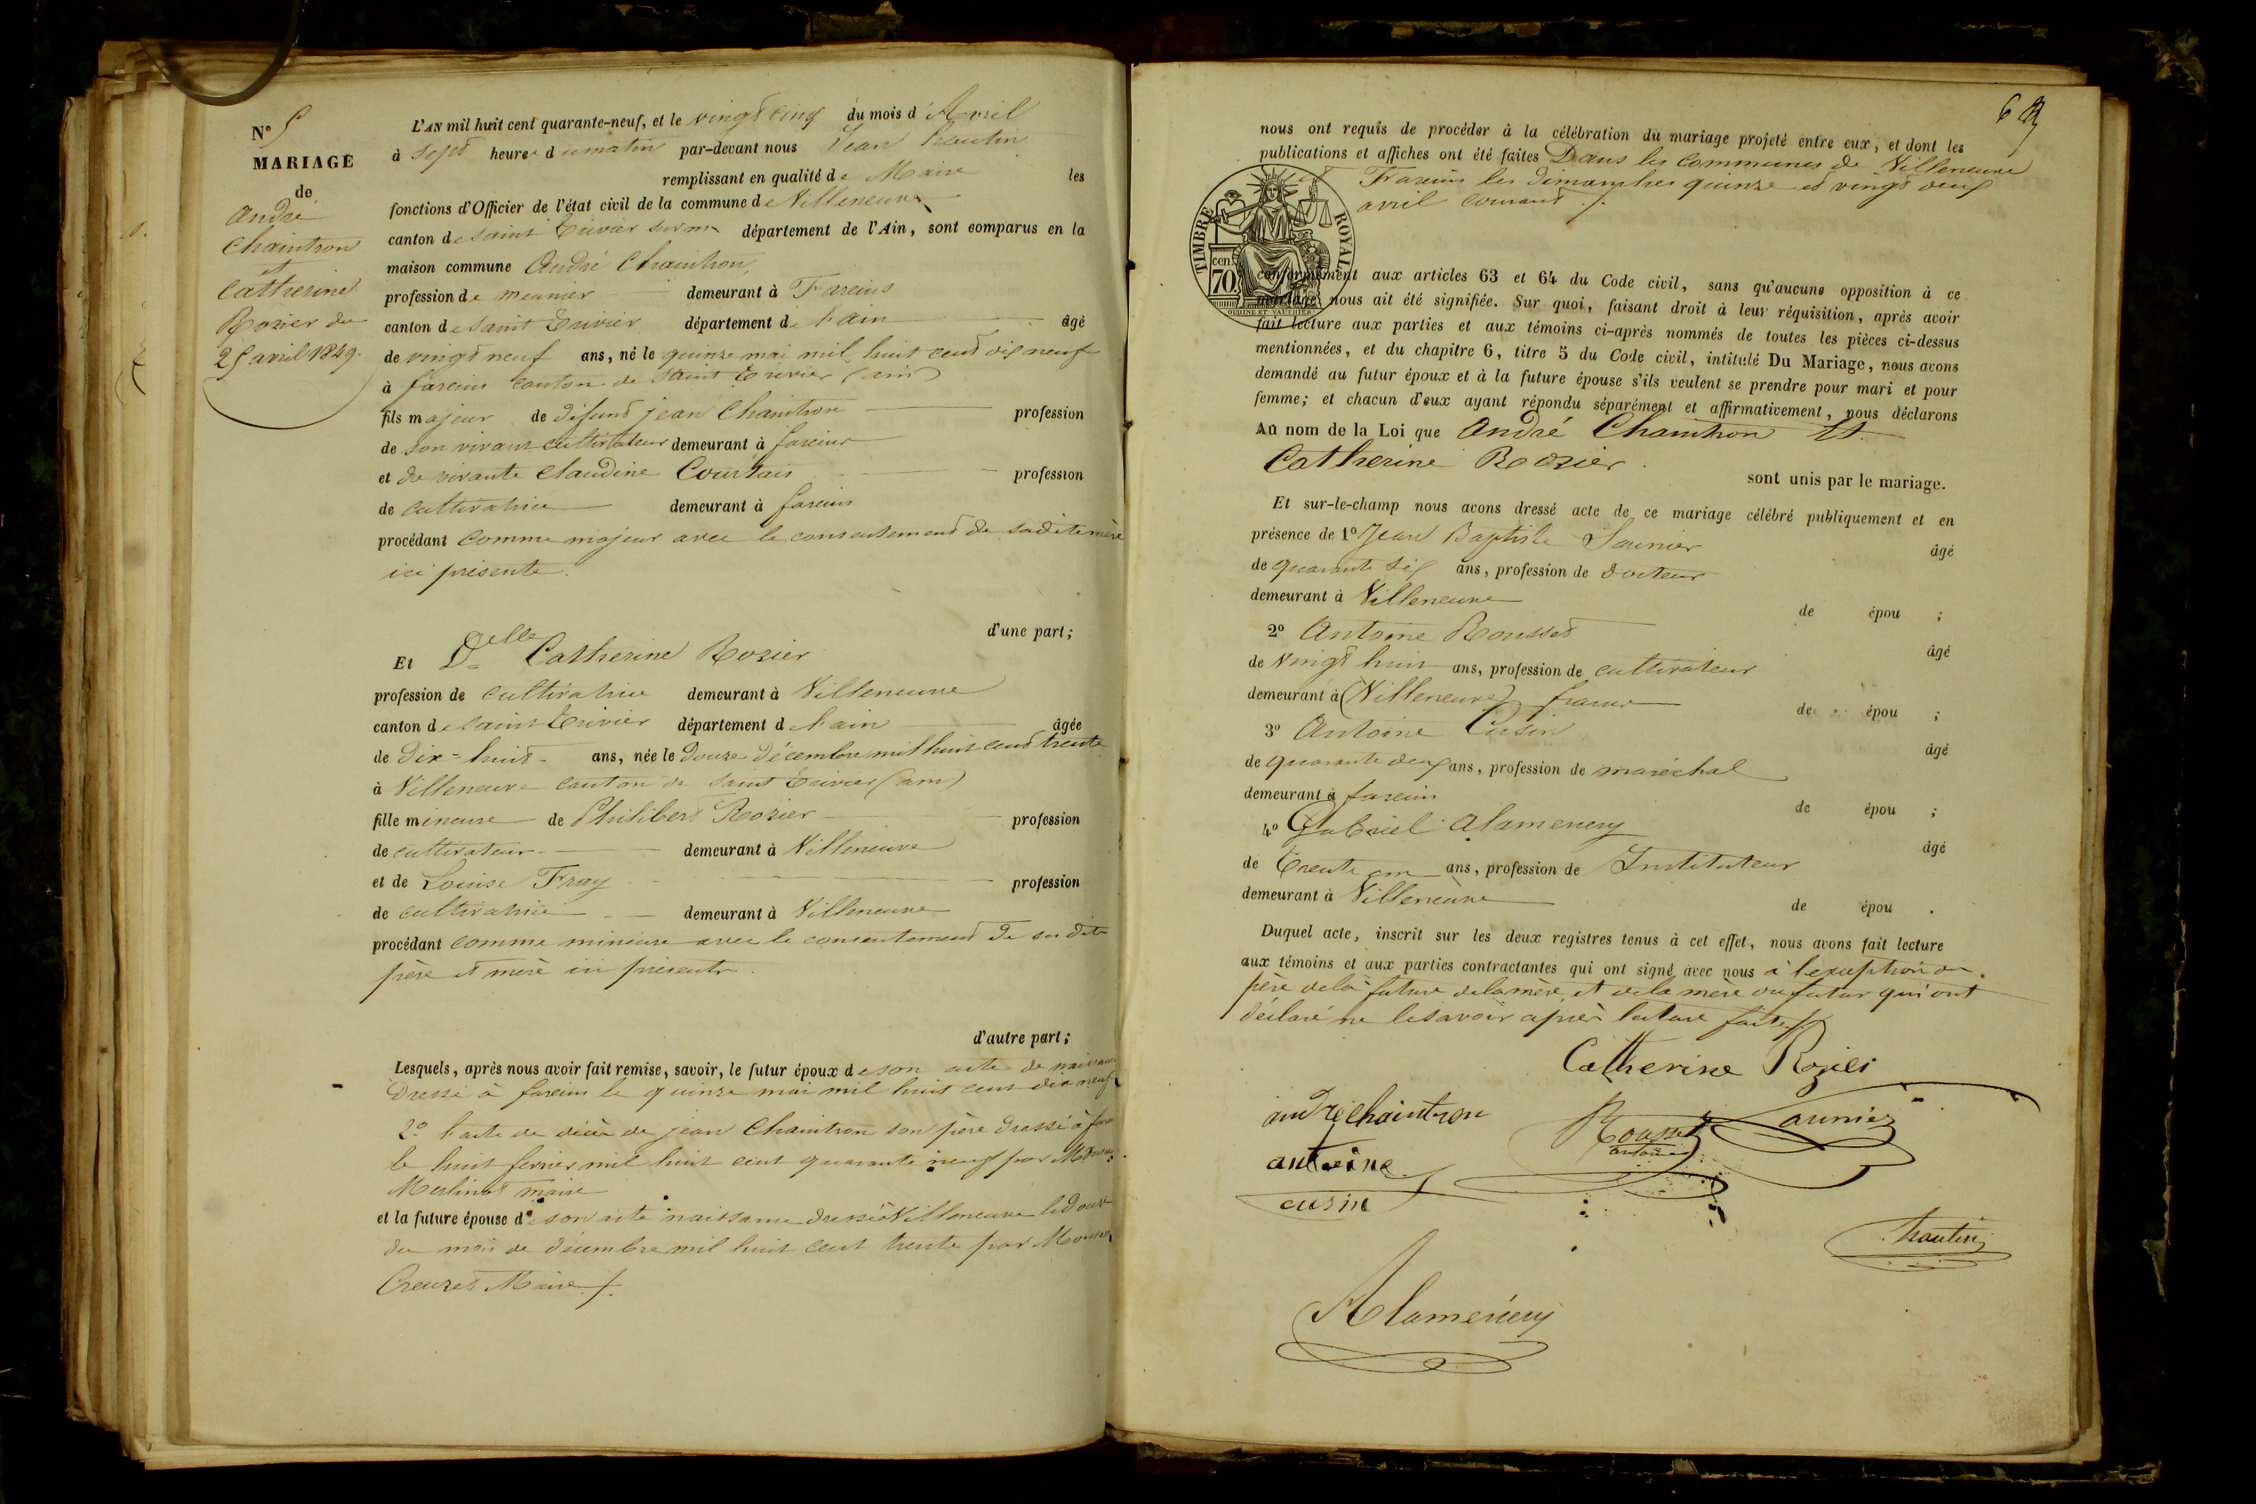 N° 5
MARIAGE
de
André
Chaintron
et
Catherine
Rozier du
25 avril 1849.
L'AN mil huit cent quarante-neuf, et le vingt cinq du mois d'Avril
à sept heures du matin par-devant nous Jean
remplissant en qualité de Maire les
fonctions d'Officier de l'état civil de la commune de Villeneuve
canton de saint Trivier département de l'Ain, sont comparus en la
maison commune André Chaintron,
profession de meunier demeurant à Fareins
canton de saint Trivier département de l'ain âgé
de vingt neuf ans, né le quinze mai mil huit cent dix neuf
à fareins canton de saint Trivier (ain)
fils majeur de défunt jean Chaintron profession
de son vivant cultivateur demeurant à fareins
et de vivante Claudine profession
de cultivatrice demeurant à fareins
procédant comme majeur avec le consentement de sadite mère
ici présente.
d'une part;
Et Delle Catherine Rozier
profession de cultivatrice demeurant à Villeneuve
canton de saint Trivier département de l'ain âgée
de dix-huit ans, née le douze décembre mil huit cent trente
à Villeneuve canton de saint Trivier (ain)
fille mineure de Philibert Rozier profession
de cultivateur demeurant à Villeneuve
et de Louise Fray profession
de cultivatrice demeurant à Villeneuve
procédant comme mineure avec le consentement de ses dits
père et mère ici présents.
d'autre part;
Lesquels, après nous avoir fait remise, savoir, le futur époux de son acte de naissance
dressé à fareins le quinze mai mil huit cent dix neuf
2° l'acte de décès de jean Chaintron son père dressé à
le huit fevrier mil huit cent quarante neuf par
maire
et la future épouse de son acte naissance dressé à Villeneuve le douze
du mois de décembre mil huit cent trente par
Creuzet Maire ./.
6
nous ont requis de procéder à la célébration du mariage projeté entre eux, et dont les
publications et affiches ont été faites Dans les communes de Villeneuve
et Fareins les dimanches quinze et vingt deux
avril courant ./.
TIMBRE ROYAL
70 cen.
conformément aux articles 63 et 64 du Code civil, sans qu'aucune opposition à ce
mariage nous ait été signifiée. Sur quoi, faisant droit à leur réquisition, après avoir
fait lecture aux parties et aux témoins ci-après nommés de toutes les pièces ci-dessus
mentionnées, et du chapitre 6, titre 5 du Code civil, intitulé Du Mariage, nous avons
demandé au futur époux et à la future épouse s'ils veulent se prendre pour mari et pour
femme; et chacun d'eux ayant répondu séparément et affirmativement, nous déclarons
Au nom de la Loi que André Chaintron Et
Catherine Rozier.
sont unis par le mariage.
Et sur-le-champ nous avons dressé acte de ce mariage célébré publiquement et en
présence de 1° Jean Baptiste Saunier âgé
de quarante six ans, profession de docteur
demeurant à Villeneuve de épou ;
2° Antoine Rousset âgé
de vingt huit ans, profession de cultivateur
demeurant à (Villeneuve) de épou ;
3° Antoine Cusin âgé
de quarante deux ans, profession de maréchal
demeurant à fareins de épou ;
4° Gabriel Alamercery âgé
de Trente un ans, profession de Instituteur
demeurant à Villeneuve de épou .
Duquel acte, inscrit sur les deux registres tenus à cet effet, nous avons fait lecture
aux témoins et aux parties contractantes qui ont signé avec nous à l'exception du
père de la future de la mère, et de la mère du futur qui ont
déclaré ne le savoir après lecture faite ./.
Catherine Rozier
andre chaintron
Rousset
antoine
Saunier
antoine
cusin
Alamercery